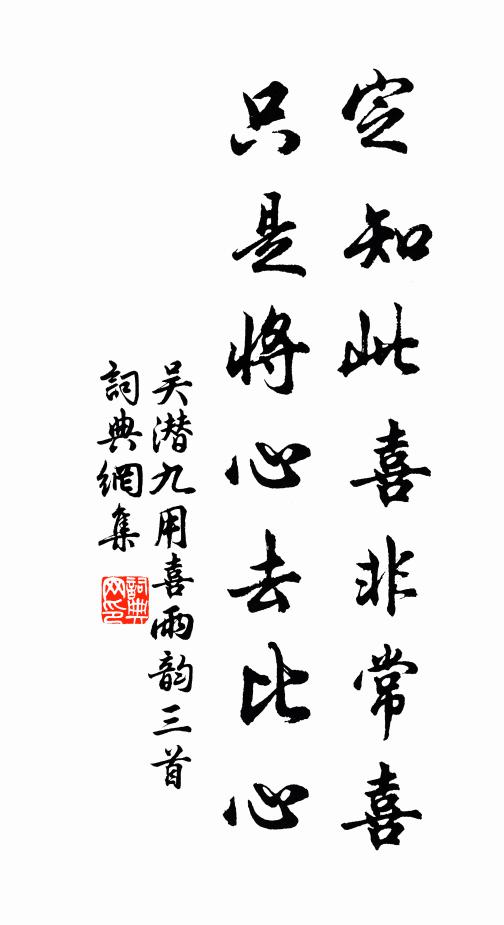 定知此喜非常喜
只是將心去比心
吴潜九用喜雨韵三首
詞典網集
詞典網印